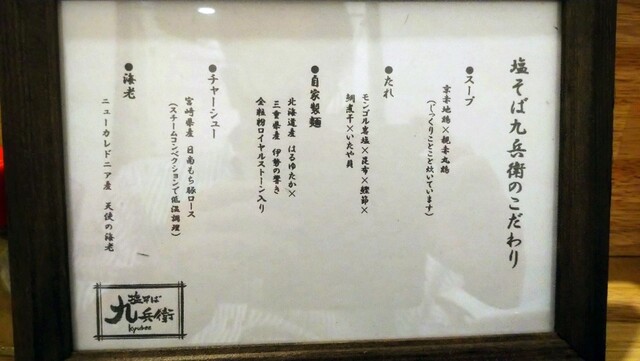 塩そば九兵衛のこだわり
●スープ
京赤地鶏×親赤丸鶏
(じっくりことこと炊いています)
●たれ
モンゴル岩塩×昆布×鰹節×
鯛煮干×いたや貝
●自家製麺
北海道産 はるゆたか×
三重県産 伊勢の響き
全粒粉ロイヤルストーン入り
●チャーシュー
宮崎県産 日南もち豚ロース
(スチームコンベクションで低温調理)
●海老
ニューカレドニア産 天使の海老
塩そば
九兵衛
kyubee